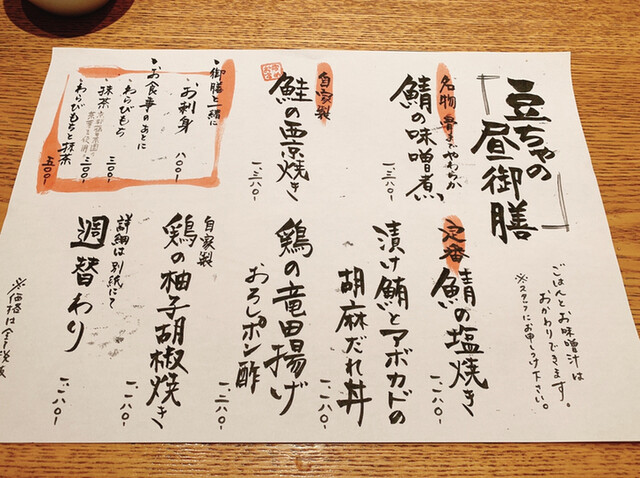 豆ちゃの
昼御膳
ごはんとお味噌汁は
おかわりできます。
※スタッフにお申しつけ下さい。
名物 骨までやわらか
鯖の味噌煮
一、三八〇-
定番 鯖の塩焼き
一、一八〇-
漬け鮪とアボカドの
胡麻だれ丼
一、一八〇-
自家製
鮭の西京焼き
一、三八〇-
鶏の竜田揚げ
おろしポン酢
一、二八〇-
自家製
鶏の柚子胡椒焼き
一、一八〇-
詳細は別紙にて
週替わり
一、二八〇-
・御膳と一緒に
・お刺身 八〇〇-
・お食事のあとに
・わらびもち 三〇〇-
・抹茶 三〇〇-
・わらびもちと抹茶 五〇〇-
※価格は全て税